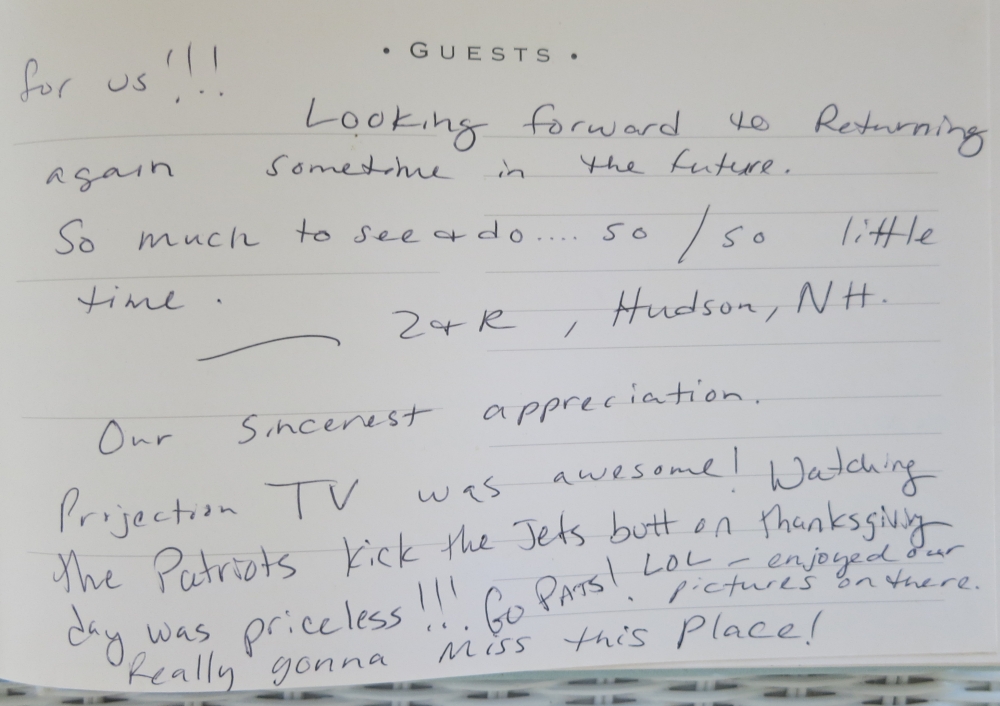 • GUESTS •
for us!!!
Looking forward to Returning
again sometime in the future.
So much to see & do.... so / so little
time.
Z & R, Hudson, NH.
Our sincerest appreciation.
Projection TV was awesome! Watching
the Patriots kick the Jets butt on thanksgiving
day was priceless!!! Go PATS! LOL - enjoyed our
pictures on there.
Really gonna miss this Place!